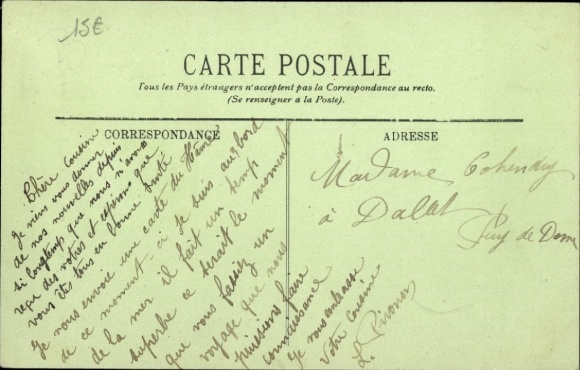 15E
CARTE POSTALE
Tous les Pays étrangers n'acceptent pas la Correspondance au recto.
(Se renseigner a la Poste).
CORRESPONDANCE
Chère Cousine
Je viens vous donner
de nos nouvelles depuis
si longtemps que nous n'avons
reçue des votres et espérons que
vous êts tous en bonne santé
Je vous envoie une carte du
de ce moment-ci je suis au bord
de la mer il fait un temp
superbe ce serait le moment
que vous fassiez un
voyage que nous
puissions faire
connaissance
Je vous embrasse
Votre Cousine
L.
ADRESSE
Madame Cohendy
à Dallet
Puy de Dome